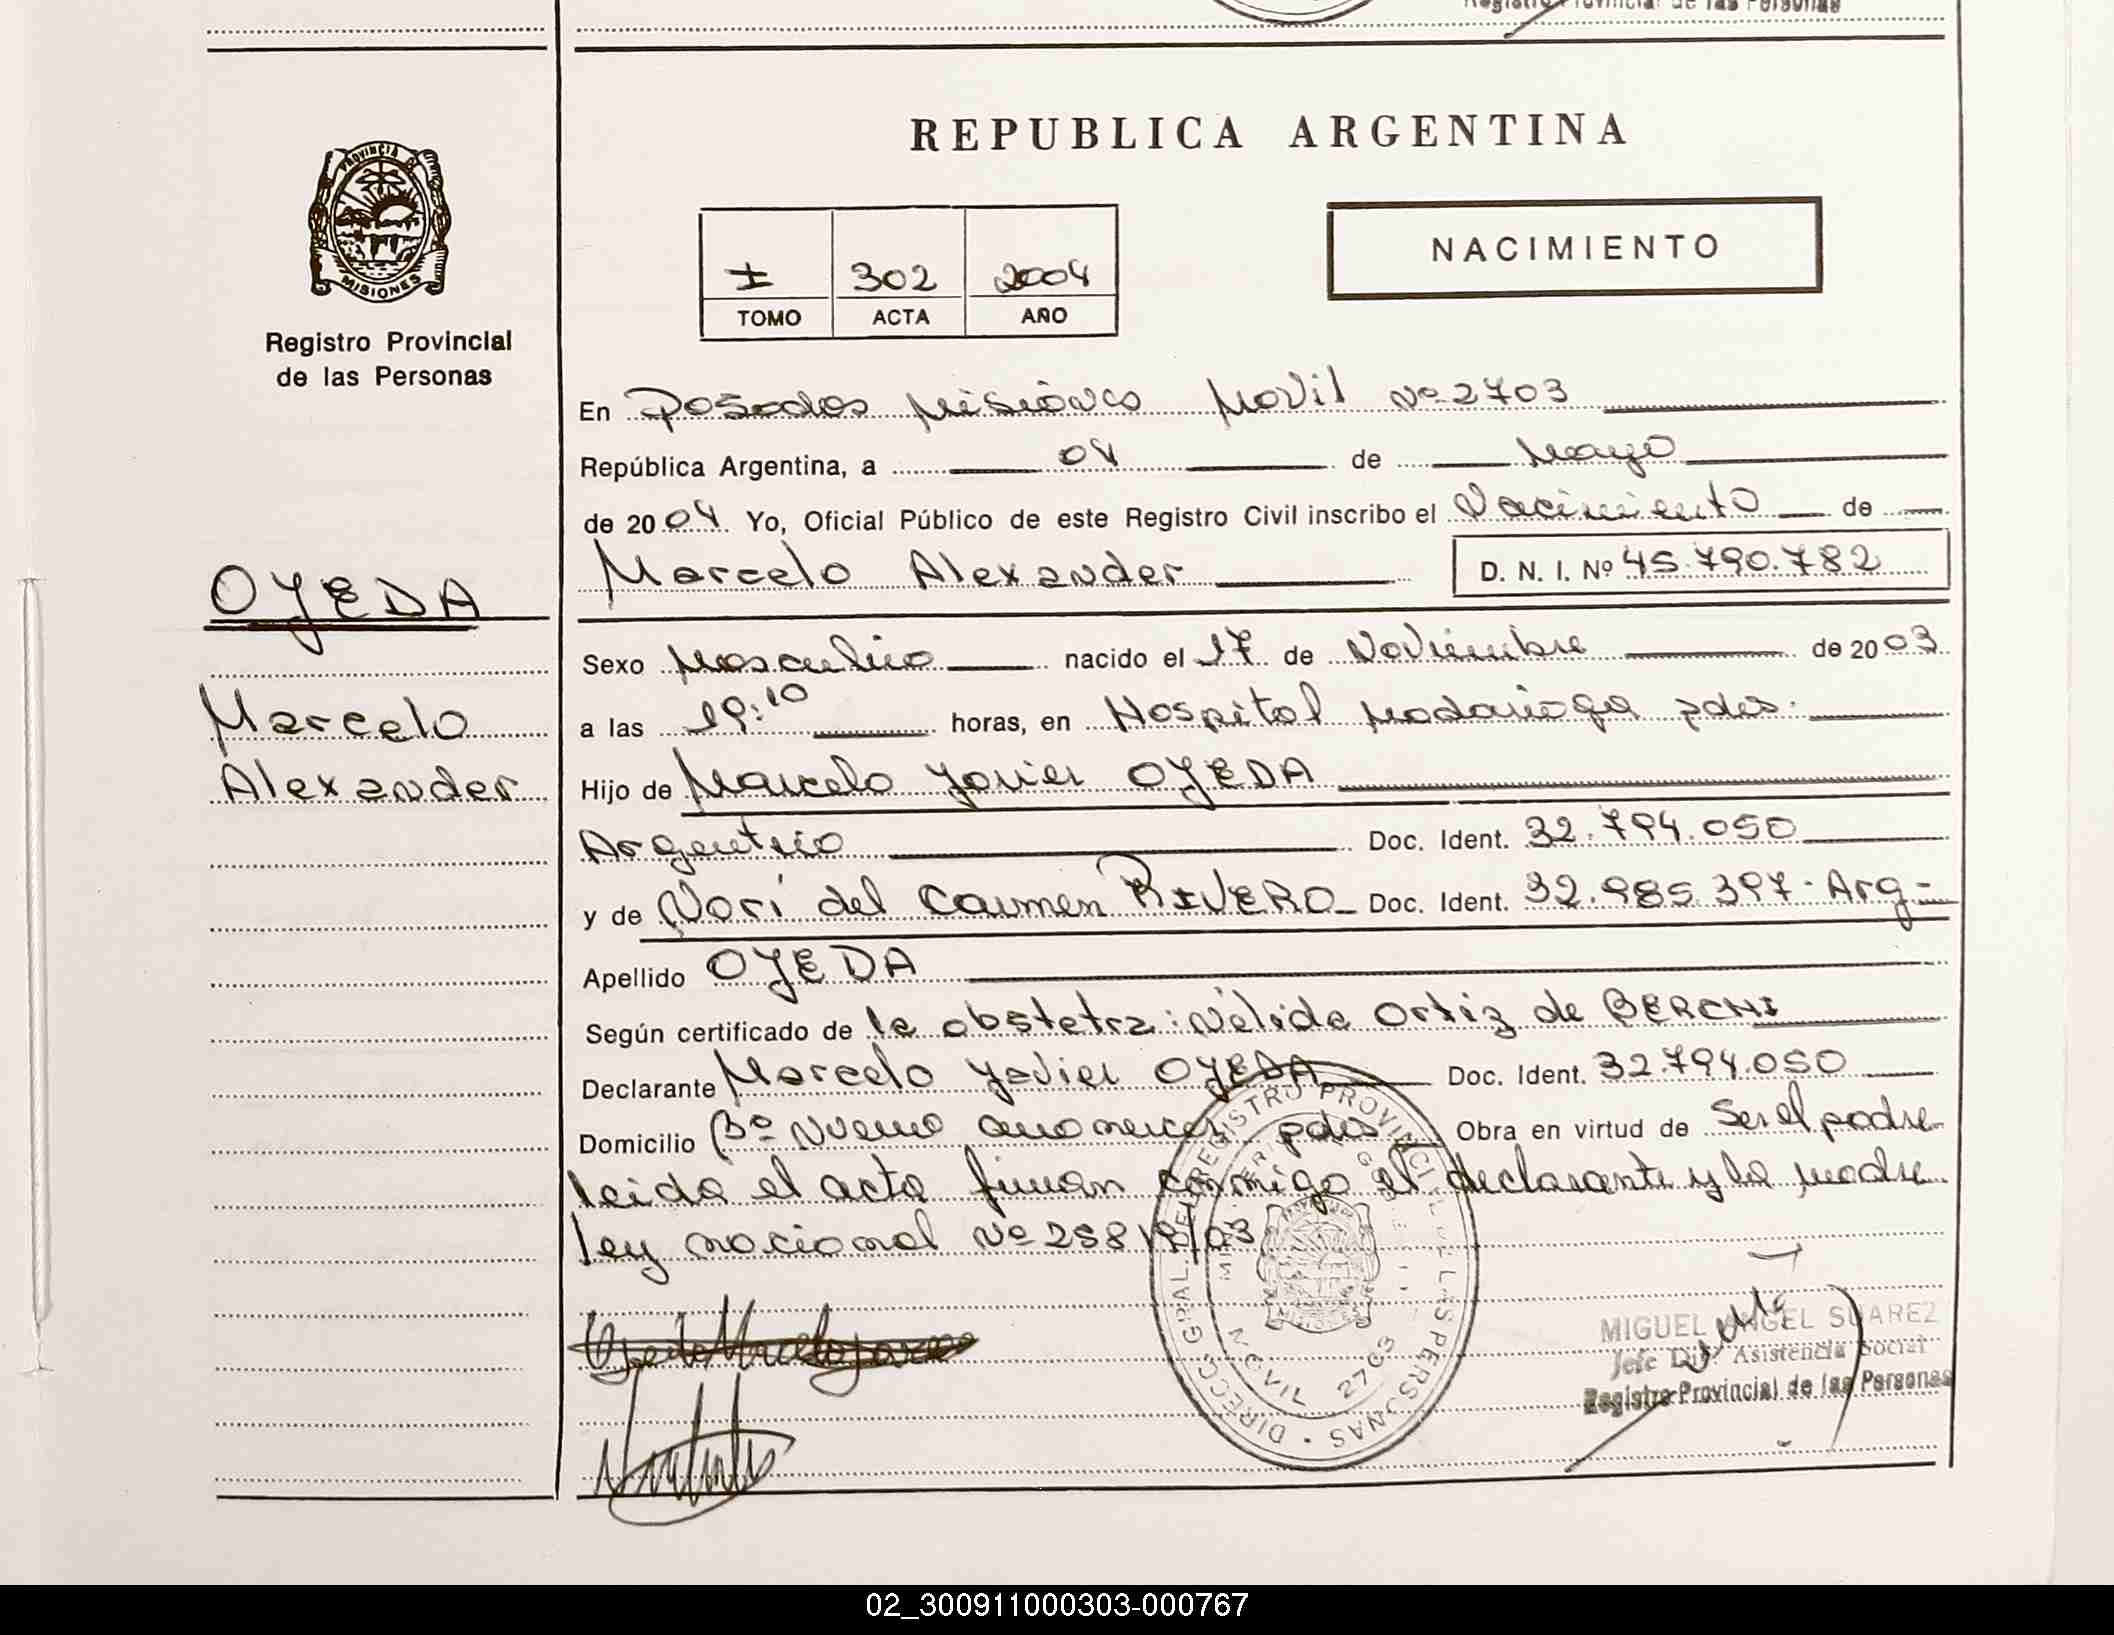 Registro Provincial de las Personas
REPUBLICA ARGENTINA
PROVINCIA DE
MISIONES
Registro Provincial
de las Personas
I 302 2004
TOMO ACTA AÑO
NACIMIENTO
OJEDA
Marcelo
Alexander
En Posadas Misiones Movil Nº 2703
República Argentina, a 04 de Mayo
de 2004 Yo, Oficial Público de este Registro Civil inscribo el Nacimiento de
Marcelo Alexander D. N. I. Nº 45.790.782
Sexo Masculino nacido el 17 de Noviembre de 2003
a las 19:10 horas, en Hospital Madariaga pdas.
Hijo de Marcelo Javier OJEDA
Argentino Doc. Ident. 32.794.050
y de Nori del Carmen RIVERO Doc. Ident. 32.985.397. Arg.
Apellido OJEDA
Según certificado de la obstetra: Nélida Ortiz de BERCHI
Declarante Marcelo Javier OJEDA Doc. Ident. 32.794.050
Domicilio Bº Nuevo amanecer pdas Obra en virtud de Ser el padre
leida el acta firman conmigo el declarante y la madre
ley nacional Nº 25819/03
DIRECC. GRAL. DEL REGISTRO PROVINCIAL DE LAS PERSONAS
2703
MIGUEL ANGEL SUAREZ
Jefe Div. Asistencia Social
Registro Provincial de las Personas
02_300911000303-000767